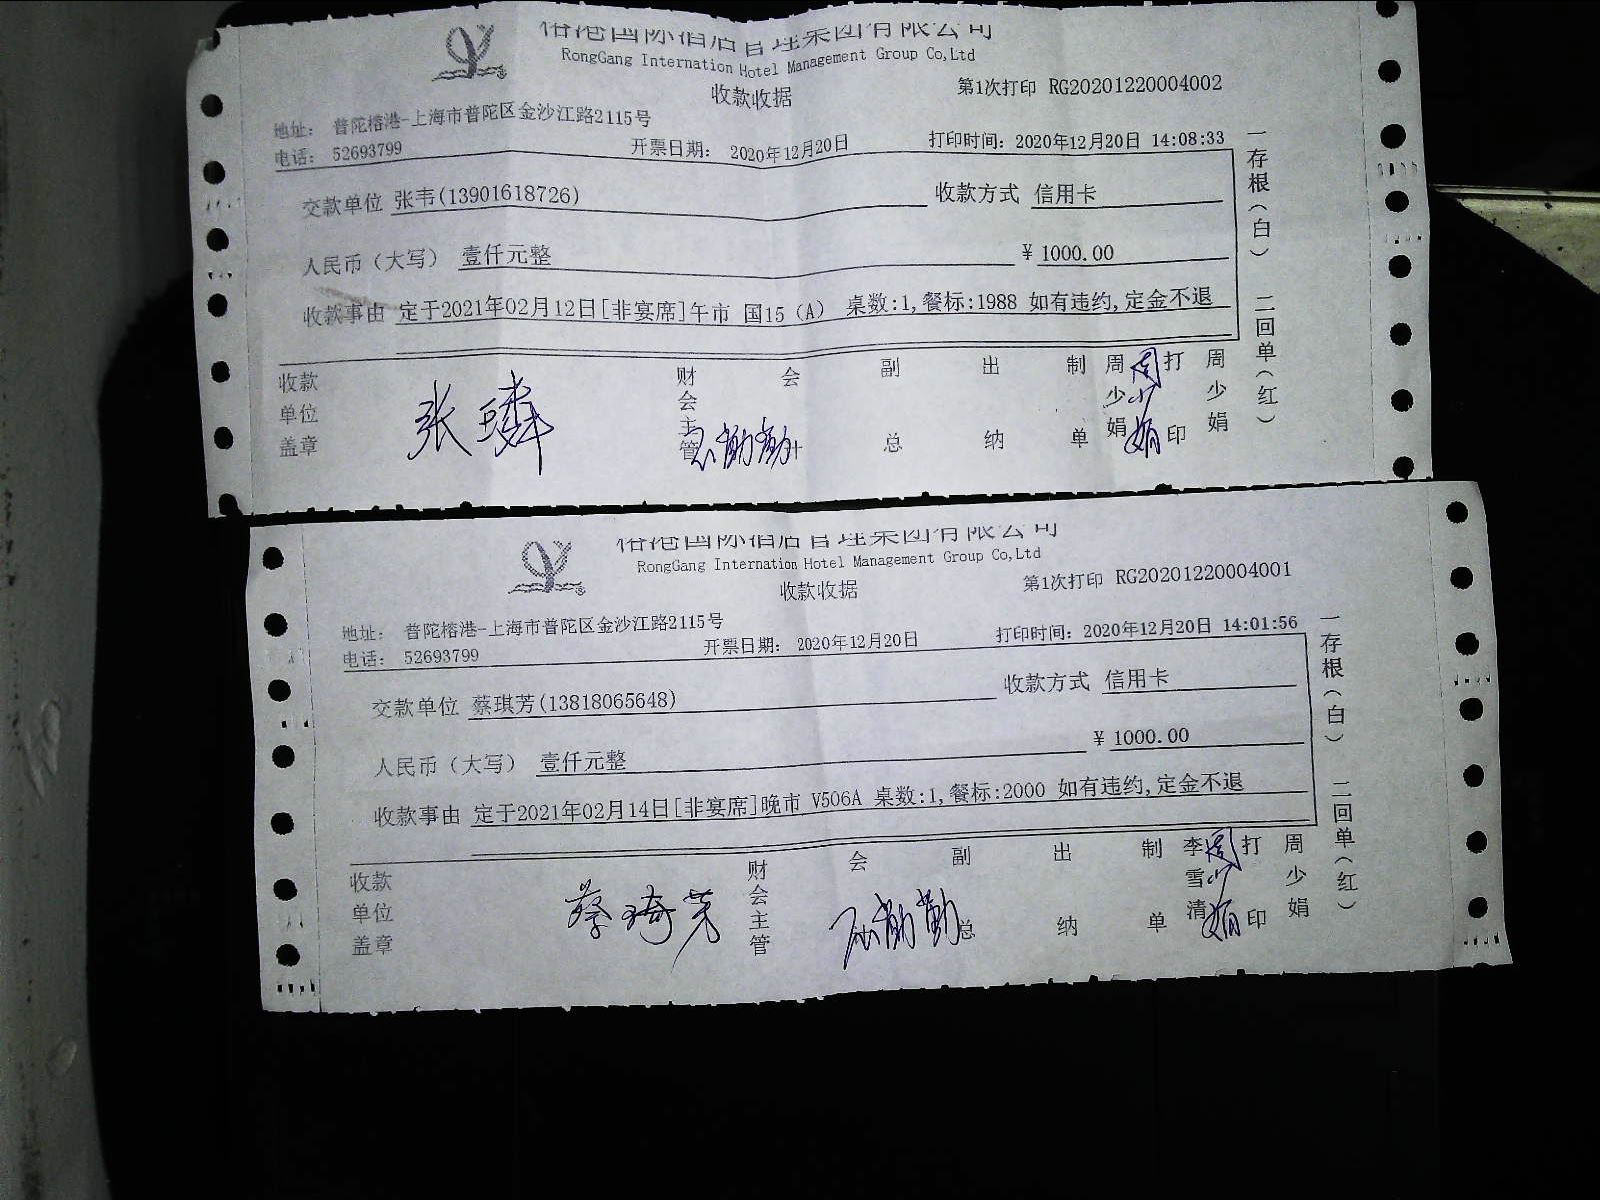 榕港国际酒店管理集团有限公司
RongGang Internation Hotel Management Group Co,Ltd
收款收据
第1次打印 RG20201220004002
地址: 普陀榕港-上海市普陀区金沙江路2115号
电话: 52693799 开票日期: 2020年12月20日 打印时间: 2020年12月20日 14:08:33
交款单位 张韦(13901618726) 收款方式 信用卡
人民币（大写） 壹仟元整 ¥ 1000.00
收款事由 定于2021年02月12日[非宴席]午市 国15（A） 桌数:1,餐标:1988 如有违约,定金不退
收款单位盖章 财会主管 会计 副总 出纳 制单 周少娟 周少娟 打印 周少娟
一存根（白） 二回单（红）
榕港国际酒店管理集团有限公司
RongGang Internation Hotel Management Group Co,Ltd
收款收据
第1次打印 RG20201220004001
地址: 普陀榕港-上海市普陀区金沙江路2115号
电话: 52693799 开票日期: 2020年12月20日 打印时间: 2020年12月20日 14:01:56
交款单位 蔡琪芳(13818065648) 收款方式 信用卡
人民币（大写） 壹仟元整 ¥ 1000.00
收款事由 定于2021年02月14日[非宴席]晚市 V506A 桌数:1,餐标:2000 如有违约,定金不退
收款单位盖章 财会主管 会 副总 出纳 制单 李雪清 周少娟 打印 周少娟
一存根（白） 二回单（红）